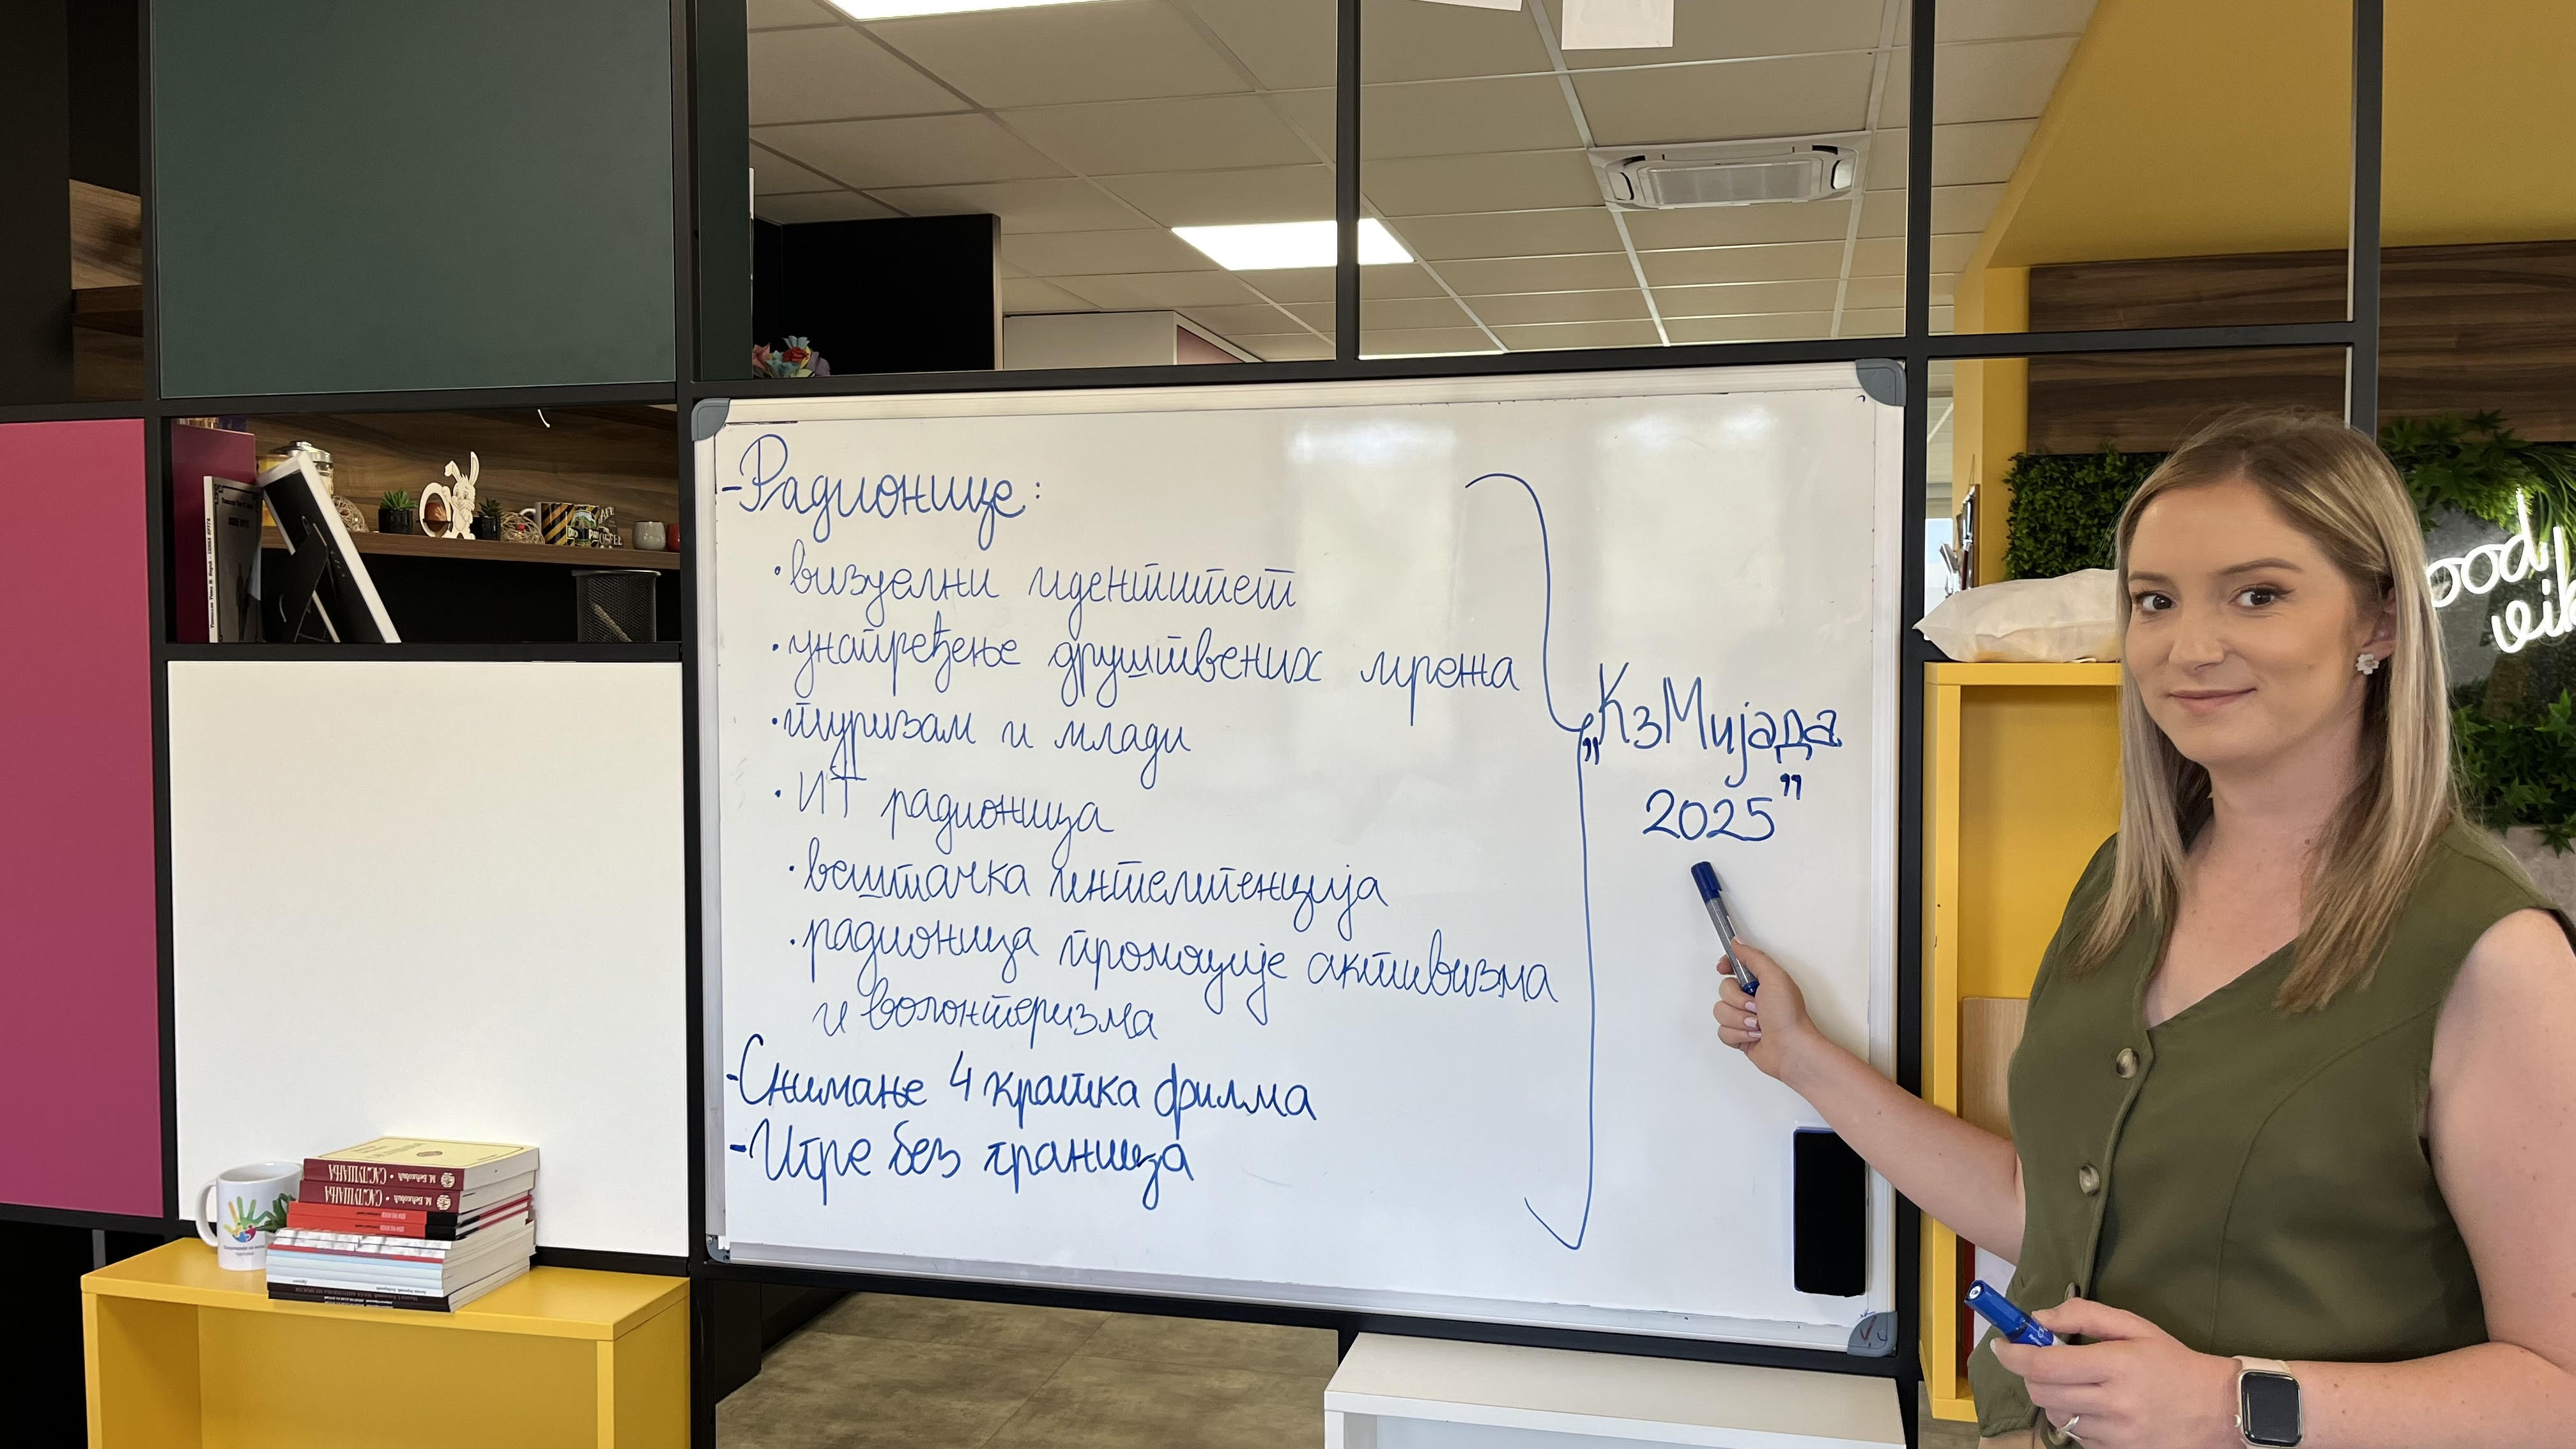 -Радионице:
•визуелни идентитет
•унапређење друштвених мрежа
•туризам и млади
•ИТ радионица
•вештачка интелигенција
•радионица промоције активизма
и волонтеризма
-Снимање 4 кратка филма
-Игре без граница
„КзМијада
2025”
ood
vib
М. Бећковић • САСЛУШАЊА
М. Бећковић • САСЛУШАЊА